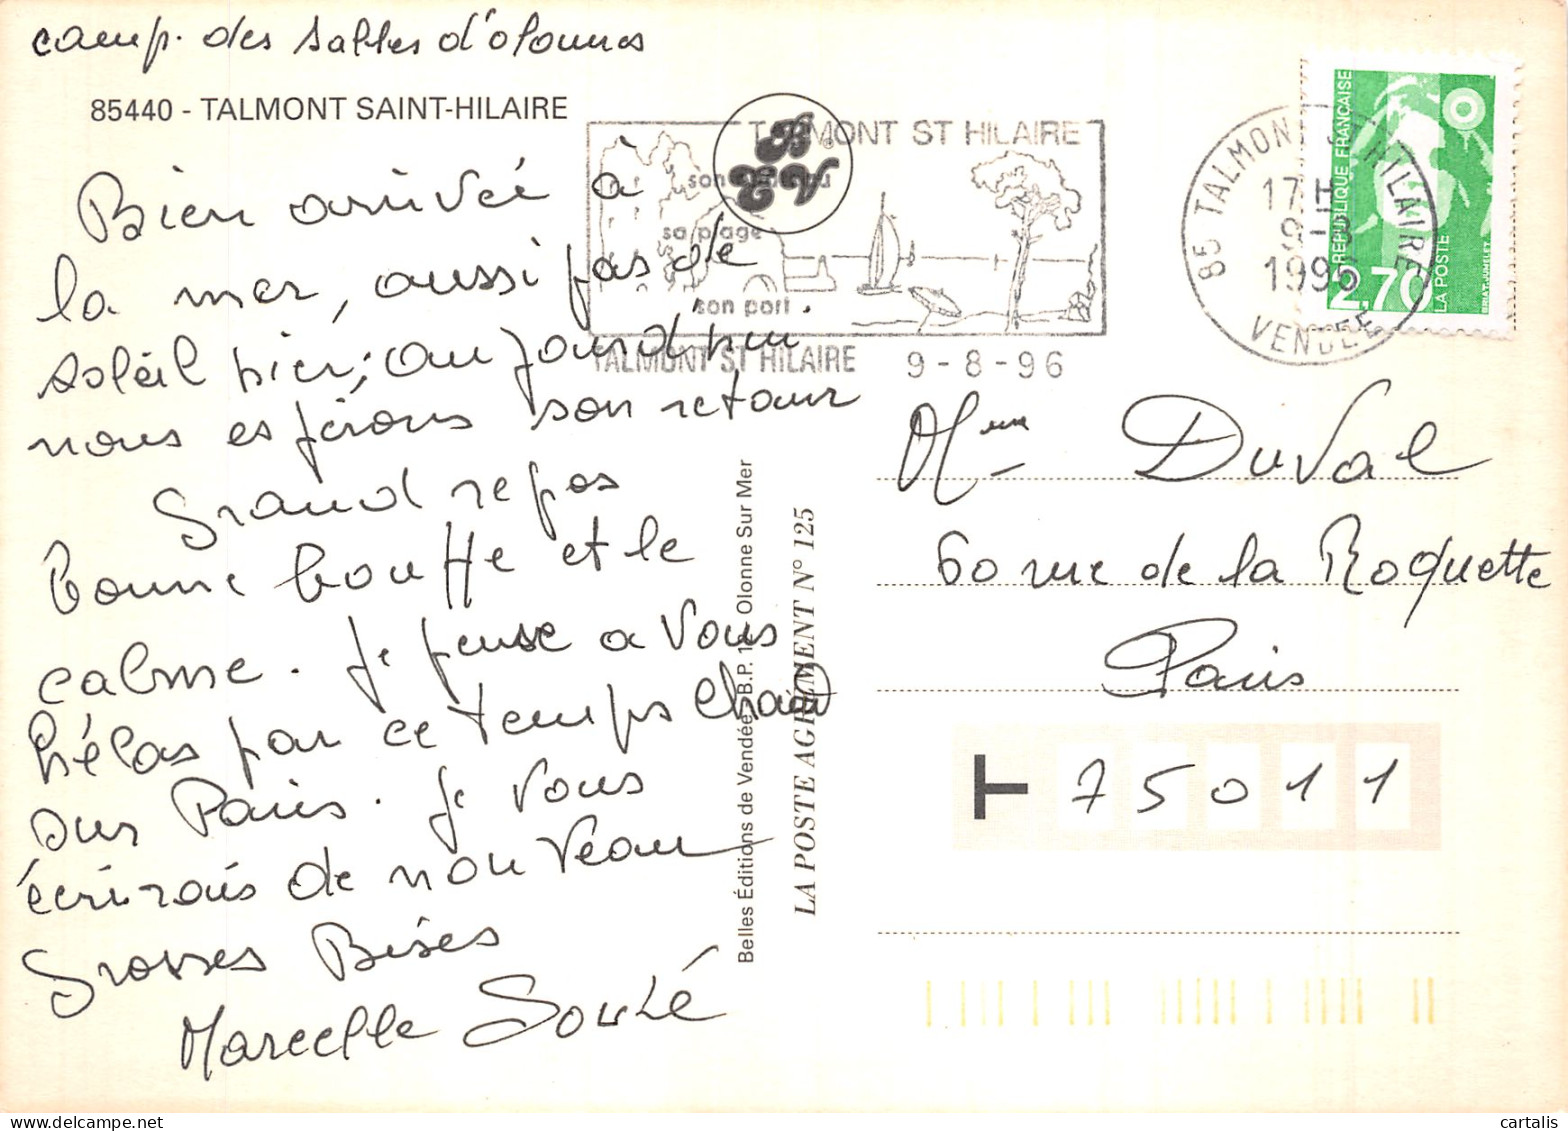 camp. des Salles d'olonnes
85440 - TALMONT SAINT-HILAIRE
Bien arrivée à
la mer, aussi pas de
soleil hier; aujourd'hui.
nous espérons son retour
Grand repos
bonne bouffe et le
calme. je pense a vous
hélas par ce temps chaud
sur Paris. je vous
écrirais de nouveau
Grosses Bises
Marcelle
TALMONT ST HILAIRE
sa plage
son port
TALMONT ST HILAIRE 9-8-96
85 TALMONT ST HILAIRE
17H
9-8
1996
VENDEE
REPUBLIQUE FRANÇAISE
2,70
LA POSTE
Belles Éditions de Vendée - B.P. Olonne Sur Mer
LA POSTE AGRÉMENT N° 125
Mme Duval
60 rue de la Roquette
Paris
T 75011
cartalis